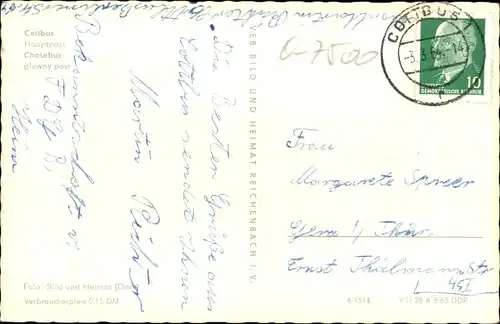 Cottbus
Hauptpost
Chośebuz
głowny post
Die Besten Grüße aus
Cottbus sendet Ihnen
Martin Richter
Bekanntschaft v.
FDGB.
Heim
Foto: Bild und Heimat
Verbraucherpreis 0,15 DM
VEB BILD UND HEIMAT REICHENBACH I. V.
0-7500
COTTBUS
-3.3.64.-14
10
DEUTSCHE DEMOKRATISCHE REPUBLIK
Frau
Margarete
Gera i/ Thür.
Ernst Thälmann Str
45I
6/1514
V 11 28 A 3/63 DDR